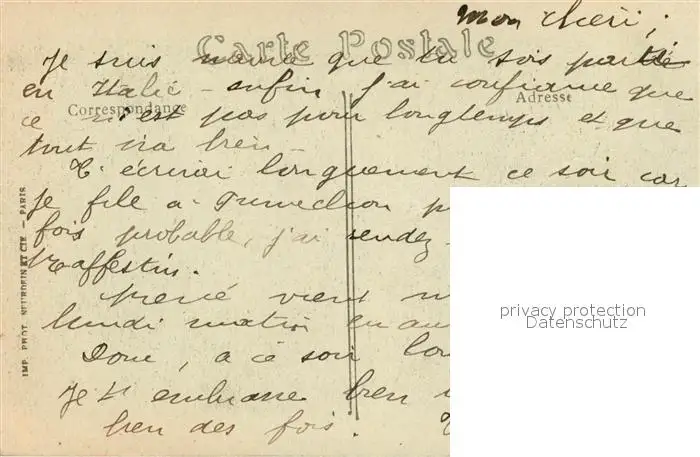 Mon cheri,
Carte Postale
Je suis navrée que tu sois partie
en Italie - enfin j'ai confiance que
Correspondance
Adresse
ce n'est pas pour longtemps et que
tout ira bien -
T'écrirai longuement ce soir car
Je file a
fois probable, j'ai rendez-
vient
lundi matin en au
Donc, a ce soir
Je t'embrasse bien
bien des fois.
IMP. PHOT. NEURDEIN ET CIE. — PARIS
privacy protection
Datenschutz